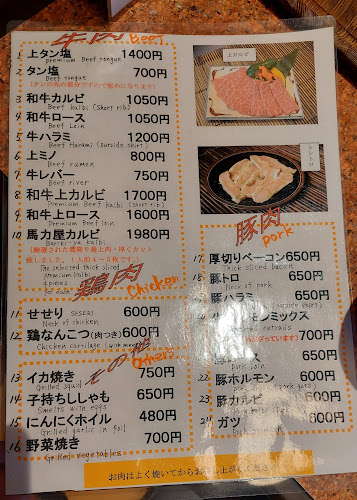 牛肉 Beef
1 上タン塩 1400円
premium Beef tongue
2 タン塩 700円
Beef tongue
3 和牛カルビ 1050円
Beef kalbi (Short rib)
4 和牛ロース 1050円
Beef Loin
5 牛ハラミ 1200円
Beef Harami (outside skirt)
6 上ミノ 800円
Beef rumen
7 牛レバー 750円
Beef river
8 和牛上カルビ 1700円
Premium Beef kalbi (Short rib)
9 和牛上ロース 1600円
Premium Beef loin
10 馬力屋カルビ 1980円
Bariki-ya kalbi
致しました。1人前4~5枚です。
The selected thick sliced
premium kalbi
鶏肉 Chicken
11 せせり SESERI 600円
Neck of chicken
12 鶏なんこつ(肉つき) 600円
Chicken cartilage (with meat)
その他 Others
13 イカ焼き 750円
Grilled squid
14 子持ちししゃも 650円
Smelts with eggs
15 にんにくホイル 480円
Grilled garlic in foil
16 野菜焼き 700円
Grilled vegetables
上カルビ
トントロ
豚肉 Pork
17 厚切りベーコン 650円
Thick sliced bacon
豚トロ 650円
Neck of pork
豚ハラミ 650円
ミックス
entrails
700円
ロース 650円
Pork loin
豚ホルモン 650円
豚カルビ 650円
24 ガツ 600円
お肉はよく焼いてからお召し上がりください